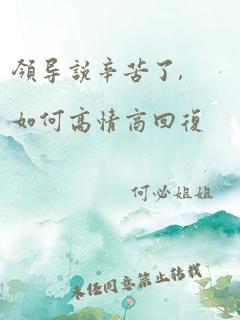 領导說辛苦了,
如何高情商回復
何必姐姐
未经同意禁止转载